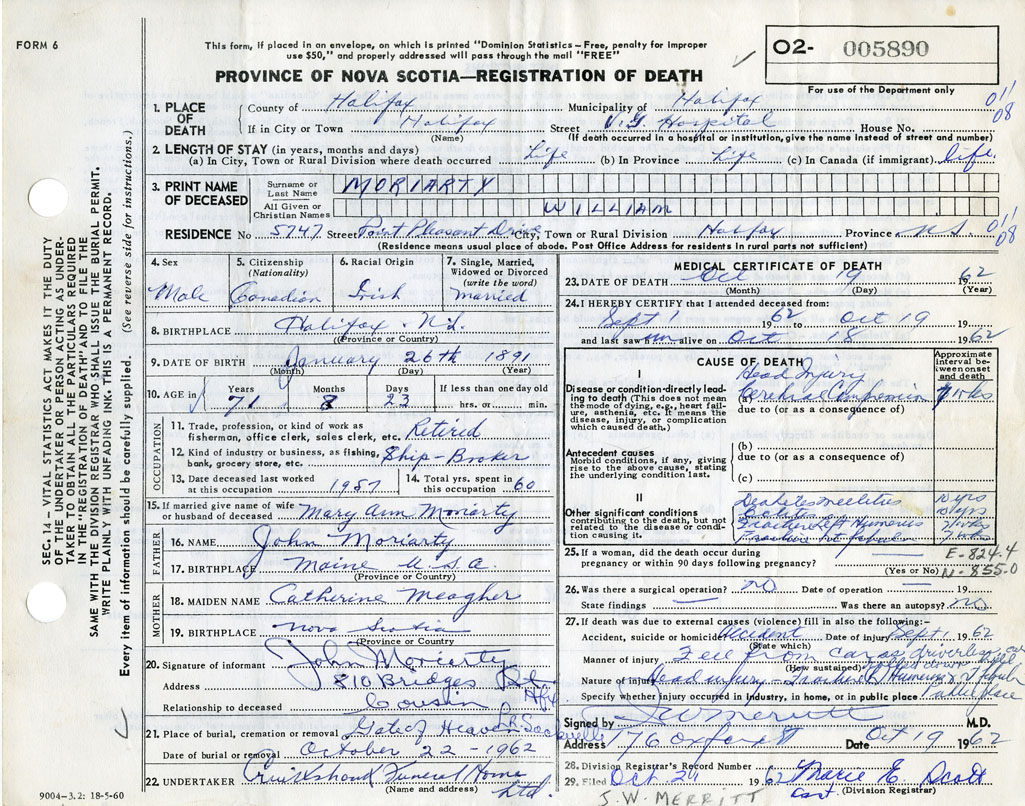 FORM 6
This form, if placed in an envelope, on which is printed "Dominion Statistics—Free, penalty for improper
use $50," and properly addressed will pass through the mail "FREE"
O2- 005890
PROVINCE OF NOVA SCOTIA—REGISTRATION OF DEATH
For use of the Department only
1. PLACE OF DEATH
County of Halifax Municipality of Halifax
011
08
If in City or Town Halifax Street V.G. Hospital House No.
(Name) (If death occurred in a hospital or institution, give the name instead of street and number)
2. LENGTH OF STAY (in years, months and days)
(a) In City, Town or Rural Division where death occurred Life (b) In Province Life (c) In Canada (if immigrant) Life
3. PRINT NAME OF DECEASED
Surname or Last Name MORIARTY
All Given or Christian Names WILLIAM
RESIDENCE No 5747 Street Point Pleasant Drive City, Town or Rural Division Halifax Province N.S.
011
08
(Residence means usual place of abode. Post Office Address for residents in rural parts not sufficient)
4. Sex
Male
5. Citizenship (Nationality)
Canadian
6. Racial Origin
Irish
7. Single, Married, Widowed or Divorced (write the word)
Married
8. BIRTHPLACE Halifax N.S.
(Province or Country)
9. DATE OF BIRTH January 26th 1891
(Month) (Day) (Year)
10. AGE in Years Months Days If less than one day old
71 8 23 hrs. or min.
OCCUPATION
11. Trade, profession, or kind of work as
fisherman, office clerk, sales clerk, etc. Retired
12. Kind of industry or business, as fishing,
bank, grocery store, etc. Ship-Broker
13. Date deceased last worked
at this occupation 1957
14. Total yrs. spent in
this occupation 60
15. If married give name of wife
or husband of deceased Mary Ann Moriarty
FATHER
16. NAME John Moriarty
17. BIRTHPLACE Maine U.S.A.
(Province or Country)
MOTHER
18. MAIDEN NAME Catherine Meagher
19. BIRTHPLACE Nova Scotia
(Province or Country)
20. Signature of informant John Moriarty
Address 810 Bridges St Hfx
Relationship to deceased Cousin
21. Place of burial, cremation or removal Gate of Heaven Lr Sackville
Date of burial or removal October 22 - 1962
22. UNDERTAKER Cruikshank Funeral Home Ltd.
(Name and address)
MEDICAL CERTIFICATE OF DEATH
23. DATE OF DEATH Oct 19 1962
(Month) (Day) (Year)
24. I HEREBY CERTIFY that I attended deceased from:
Sept 1 1962 to Oct 19 19
and last saw him alive on Oct 18 1962
CAUSE OF DEATH
Approximate interval between onset and death
I
Disease or condition directly leading to death (This does not mean the mode of dying, e.g., heart failure, asthenia, etc. It means the disease, injury, or complication which caused death.)
Head Injury
Cerebral Compression 7 wks
due to (or as a consequence of)
Antecedent causes
Morbid conditions, if any, giving rise to the above cause, stating the underlying condition last.
(b)
due to (or as a consequence of)
(c)
II
Other significant conditions
contributing to the death, but not related to the disease or condition causing it.
Diabetes mellitus 10 yrs
Fracture Left Humerus 7 wks
Fracture 7 wks
25. If a woman, did the death occur during
pregnancy or within 90 days following pregnancy?
(Yes or No)
E-824.4
N-855.0
26. Was there a surgical operation? no Date of operation —
State findings — Was there an autopsy? no
27. If death was due to external causes (violence) fill in also the following:-
Accident, suicide or homicide Accident Date of injury Sept 1 1962
(State which)
Manner of injury Fell from car as driverless car rolled down hill
(How sustained)
Nature of injury Head injury - Fracture L Humerus
Specify whether injury occurred in industry, in home, or in public place Public place
Signed by J W Merritt M.D.
Address 176 Oxford St Date Oct 19 1962
28. Division Registrar's Record Number
29. Filed Oct 24 1962 Marie E Scott
(Division Registrar)
J.W. MERRITT
SEC. 14 — VITAL STATISTICS ACT MAKES IT THE DUTY
OF THE UNDERTAKER OR PERSON ACTING AS UNDERTAKER TO OBTAIN ALL THE PARTICULARS REQUIRED
IN THE "REGISTRATION OF DEATH" AND TO FILE THE
SAME WITH THE DIVISION REGISTRAR WHO SHALL ISSUE THE BURIAL PERMIT.
WRITE PLAINLY WITH UNFADING INK. THIS IS A PERMANENT RECORD.
Every item of information should be carefully supplied. (See reverse side for instructions.)
9004-3.2: 18-5-60